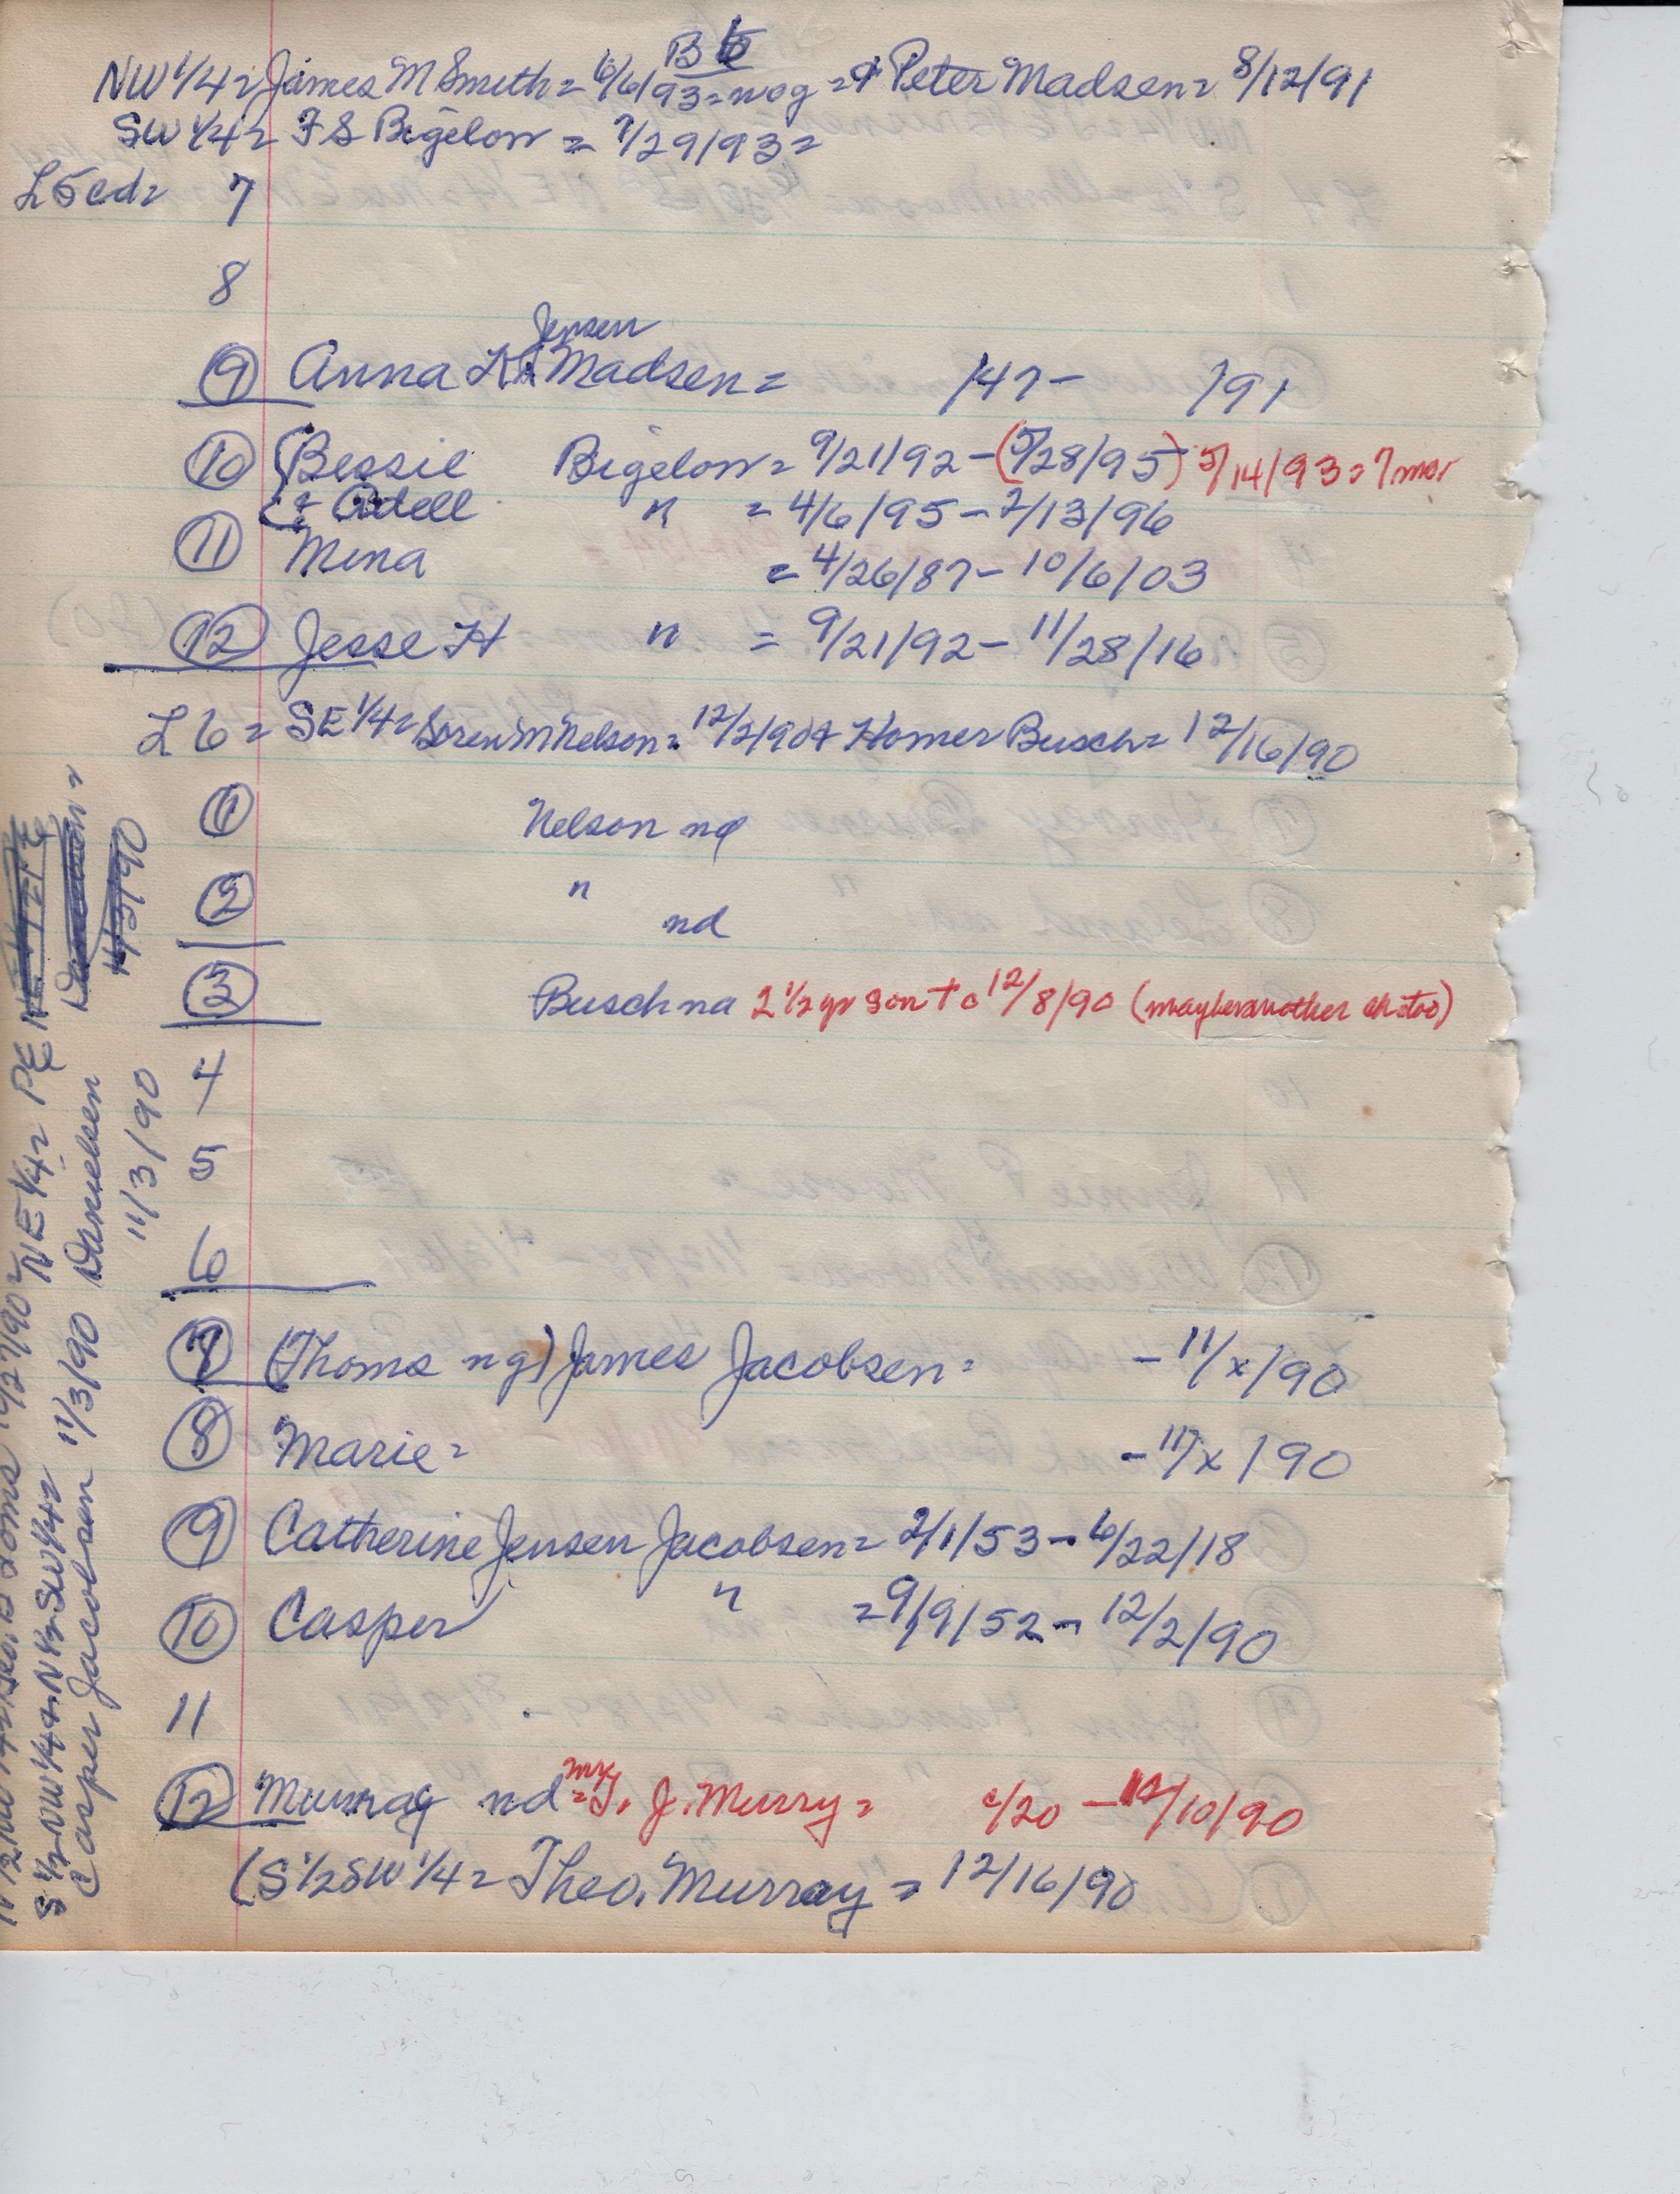 B 6
NW 1/4 = James M Smith = 6/6/93 = nog = + Peter Madsen = 8/12/91
SW 1/4 = F S Bigelow = 7/29/93 =
L5 cd = 7
8
Jensen
9 Anna K Madsen = /47 - /91
10 Bessie Bigelow = 9/21/92 - (5/28/95) 5/14/93 = 7 mos
+ Adell " = 4/6/95 - 2/13/96
11 Mina = 4/26/87 - 10/6/03
12 Jesse H " = 9/21/92 - 11/28/16
L 6 = SE 1/4 = Soren M Nelson = 12/2/90 + Homer Busch = 12/16/90
1 Nelson nd
2 " nd
3 Busch na 2 1/2 yr son to 12/8/90 (maybe another ch too)
4
5
6
7 (Thoms ng) James Jacobsen = - 11/x/90
8 Marie = - 11/x/90
9 Catherine Jensen Jacobsen = 2/1/53 - 6/22/18
10 Casper " = 9/9/52 - 12/2/90
11
mrs
12 Murray nd = T. J. Murry = c/20 - 12/10/90
(S 1/2 SW 1/4 = Theo. Murray = 12/16/90
N 1/2 NW 1/4 = Geo. Toms /27/90 =
S 1/2 NW 1/4 + N 1/2 SW 1/4 = NE 1/4 = PE
Casper Jacobsen 11/3/90 Danielsen
11/3/90
11/3/90